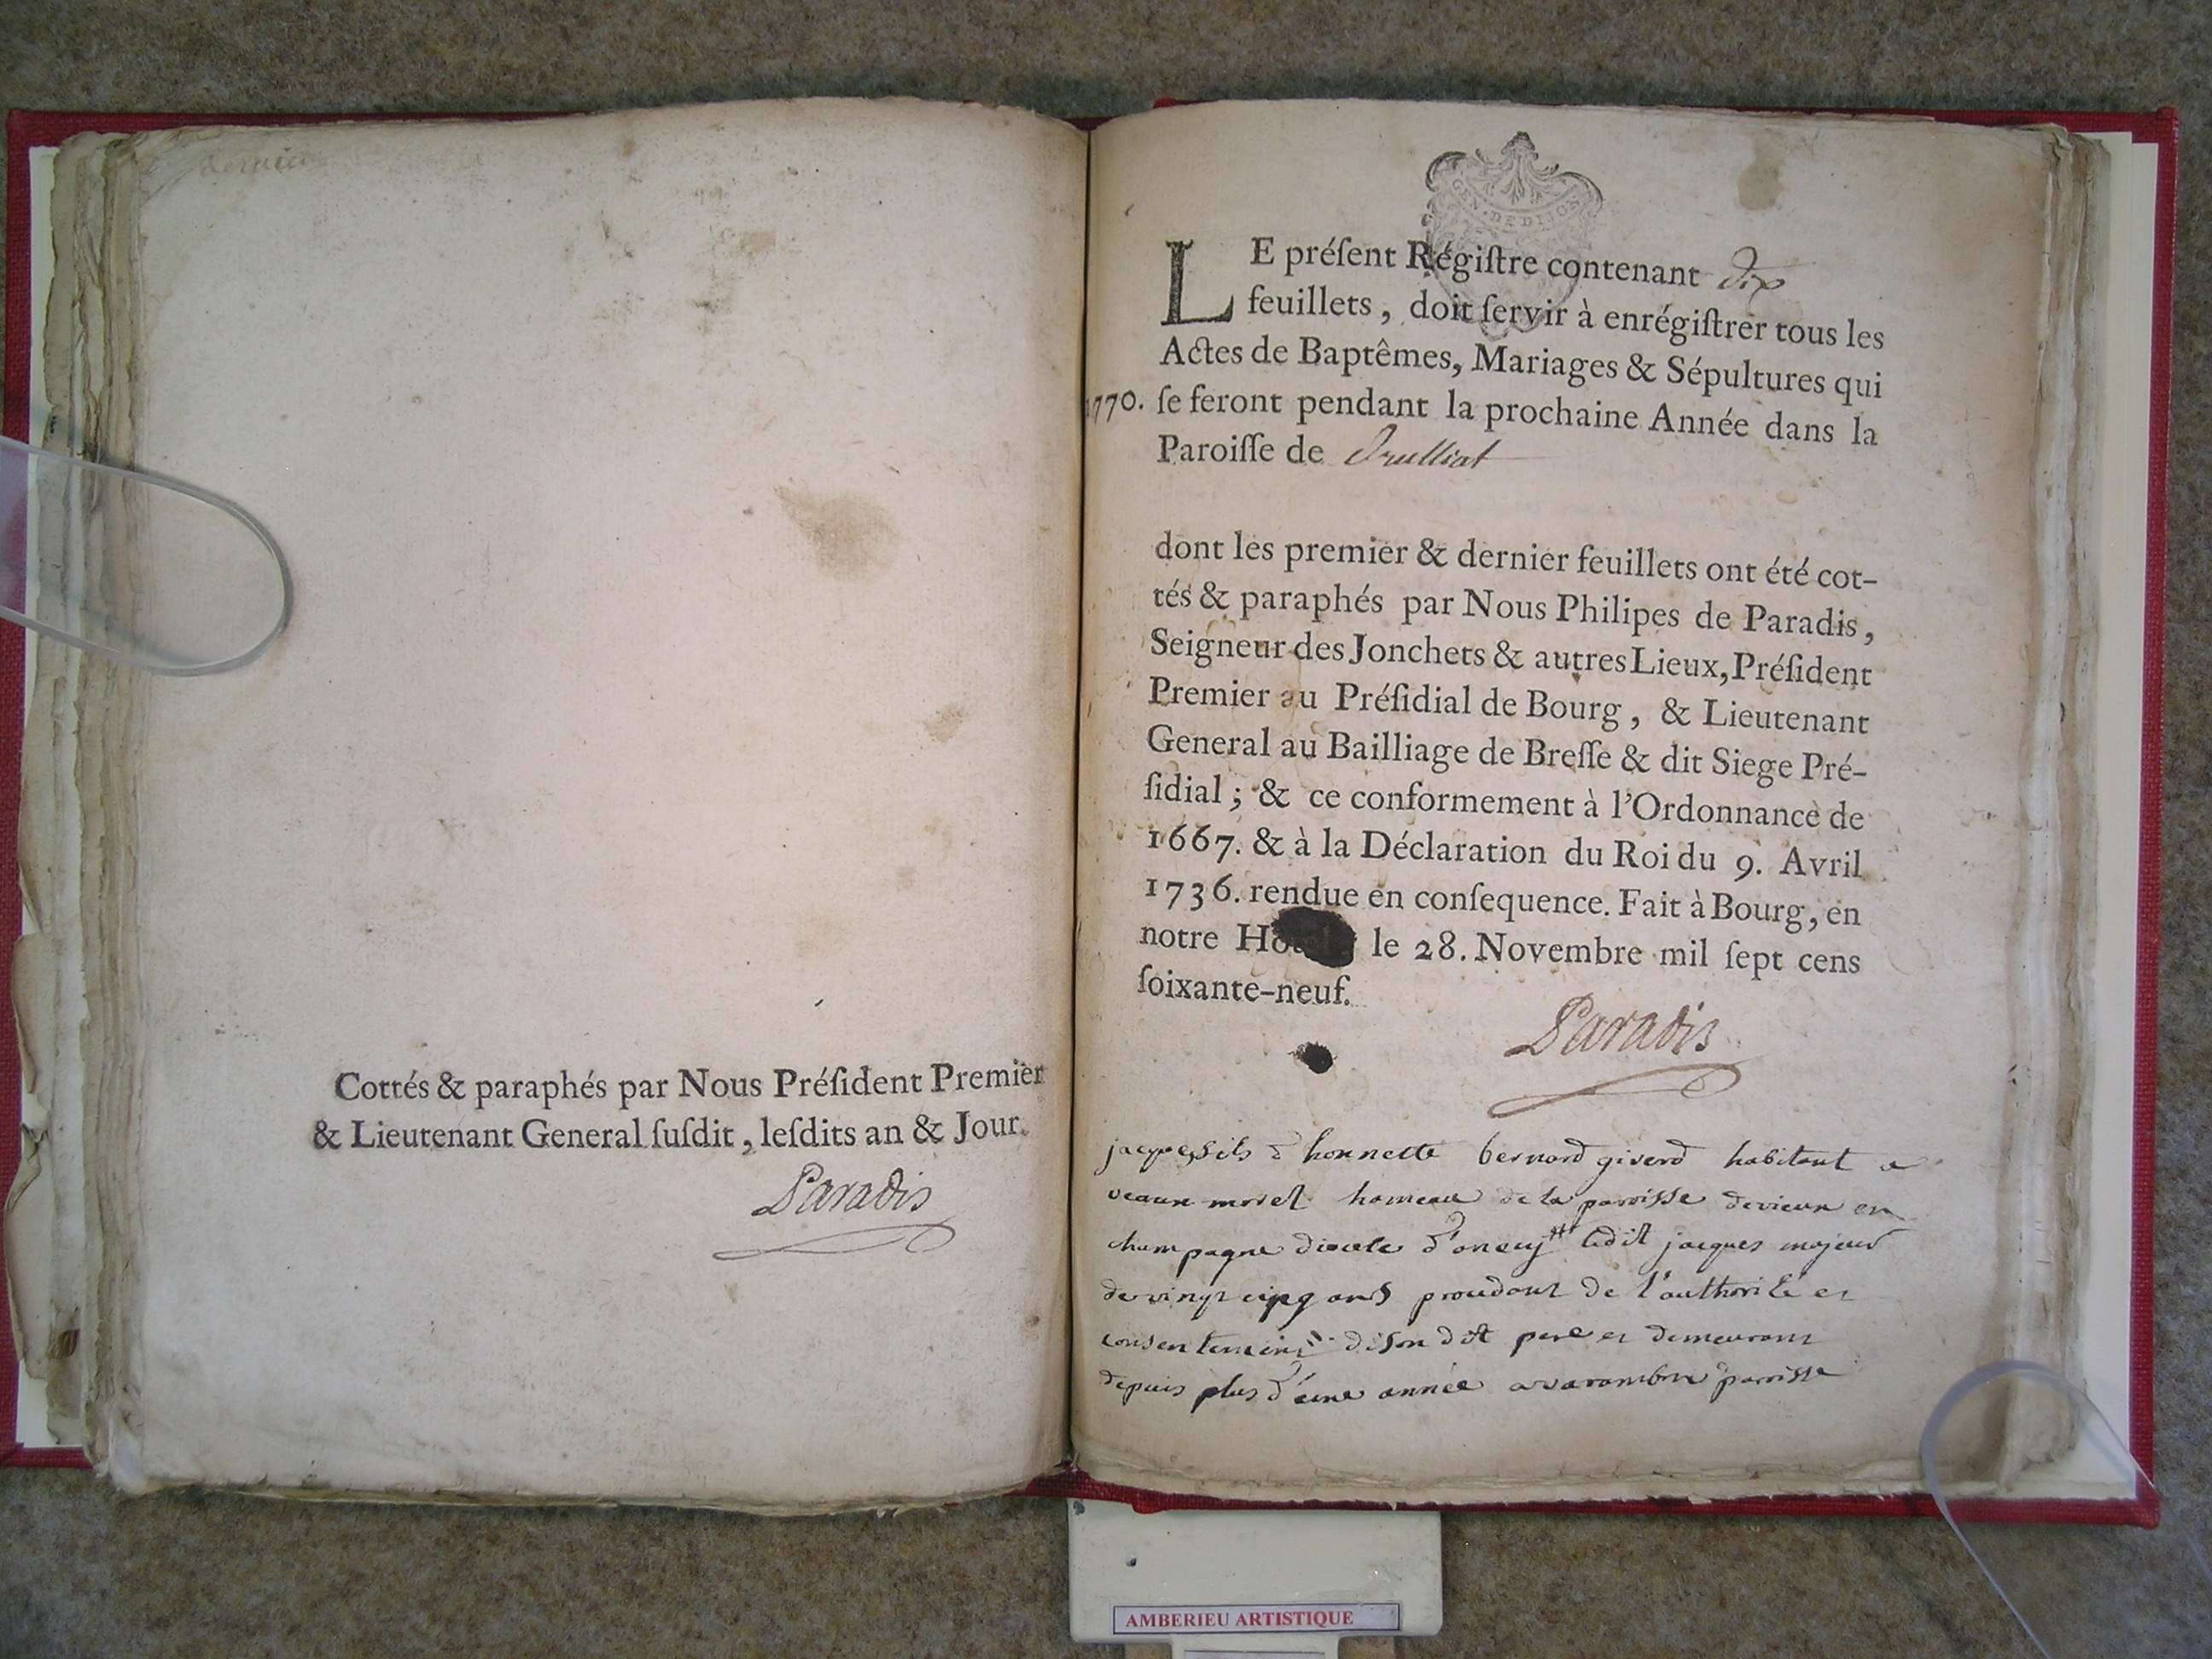 dernier
Cottés & paraphés par Nous Préſident Premier
& Lieutenant General ſuſdit, leſdits an & Jour.
Paradis
GEN. DE DIJON
LE préſent Régiſtre contenant dix
feuillets, doit ſervir à enrégiſtrer tous les
Actes de Baptêmes, Mariages & Sépultures qui
1770. ſe feront pendant la prochaine Année dans la
Paroiſſe de Druilliat
dont les premier & dernier feuillets ont été cot-
tés & paraphés par Nous Philipes de Paradis,
Seigneur des Jonchets & autres Lieux, Préſident
Premier au Préſidial de Bourg, & Lieutenant
General au Bailliage de Breſſe & dit Siege Pré-
ſidial; & ce conformement à l'Ordonnance de
1667. & à la Déclaration du Roi du 9. Avril
1736. rendue en conſequence. Fait à Bourg, en
notre le 28. Novembre mil ſept cens
ſoixante-neuf.
Paradis
jacques fils d honnette bernard giverd habitant a
hameau de la paroisse de vieux en
champagne ledit jacques majeur
de vingt cinq ans procedant de l'authorité et
consentement de son dit pere et demeurant
depuis plus d'une année a varambon paroisse
AMBERIEU ARTISTIQUE